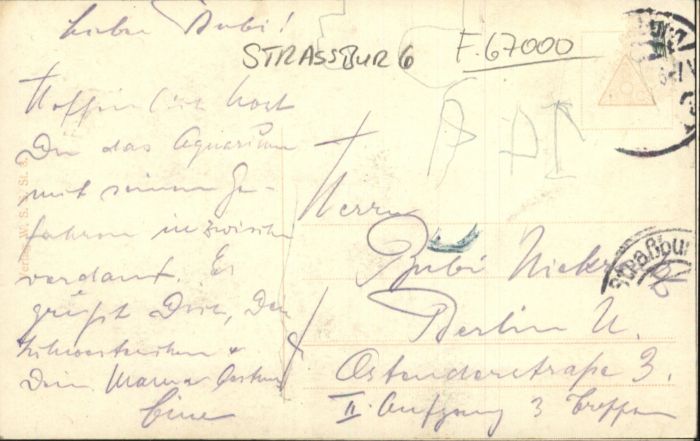 Lieber Bubi!
STRASSBURG
F. 67000
Hoffentlich hast
Du das Aquarium
mit seinen Ge-
fahren inzwischen
verdaut. Es
grüßt Dich, Dein
Schwesterchen &
Dein Mama bestens
Herrn
Bubi
Berlin N.
Ostenderstraße 3.
II. Aufgang 3 Treppen
Straßburg